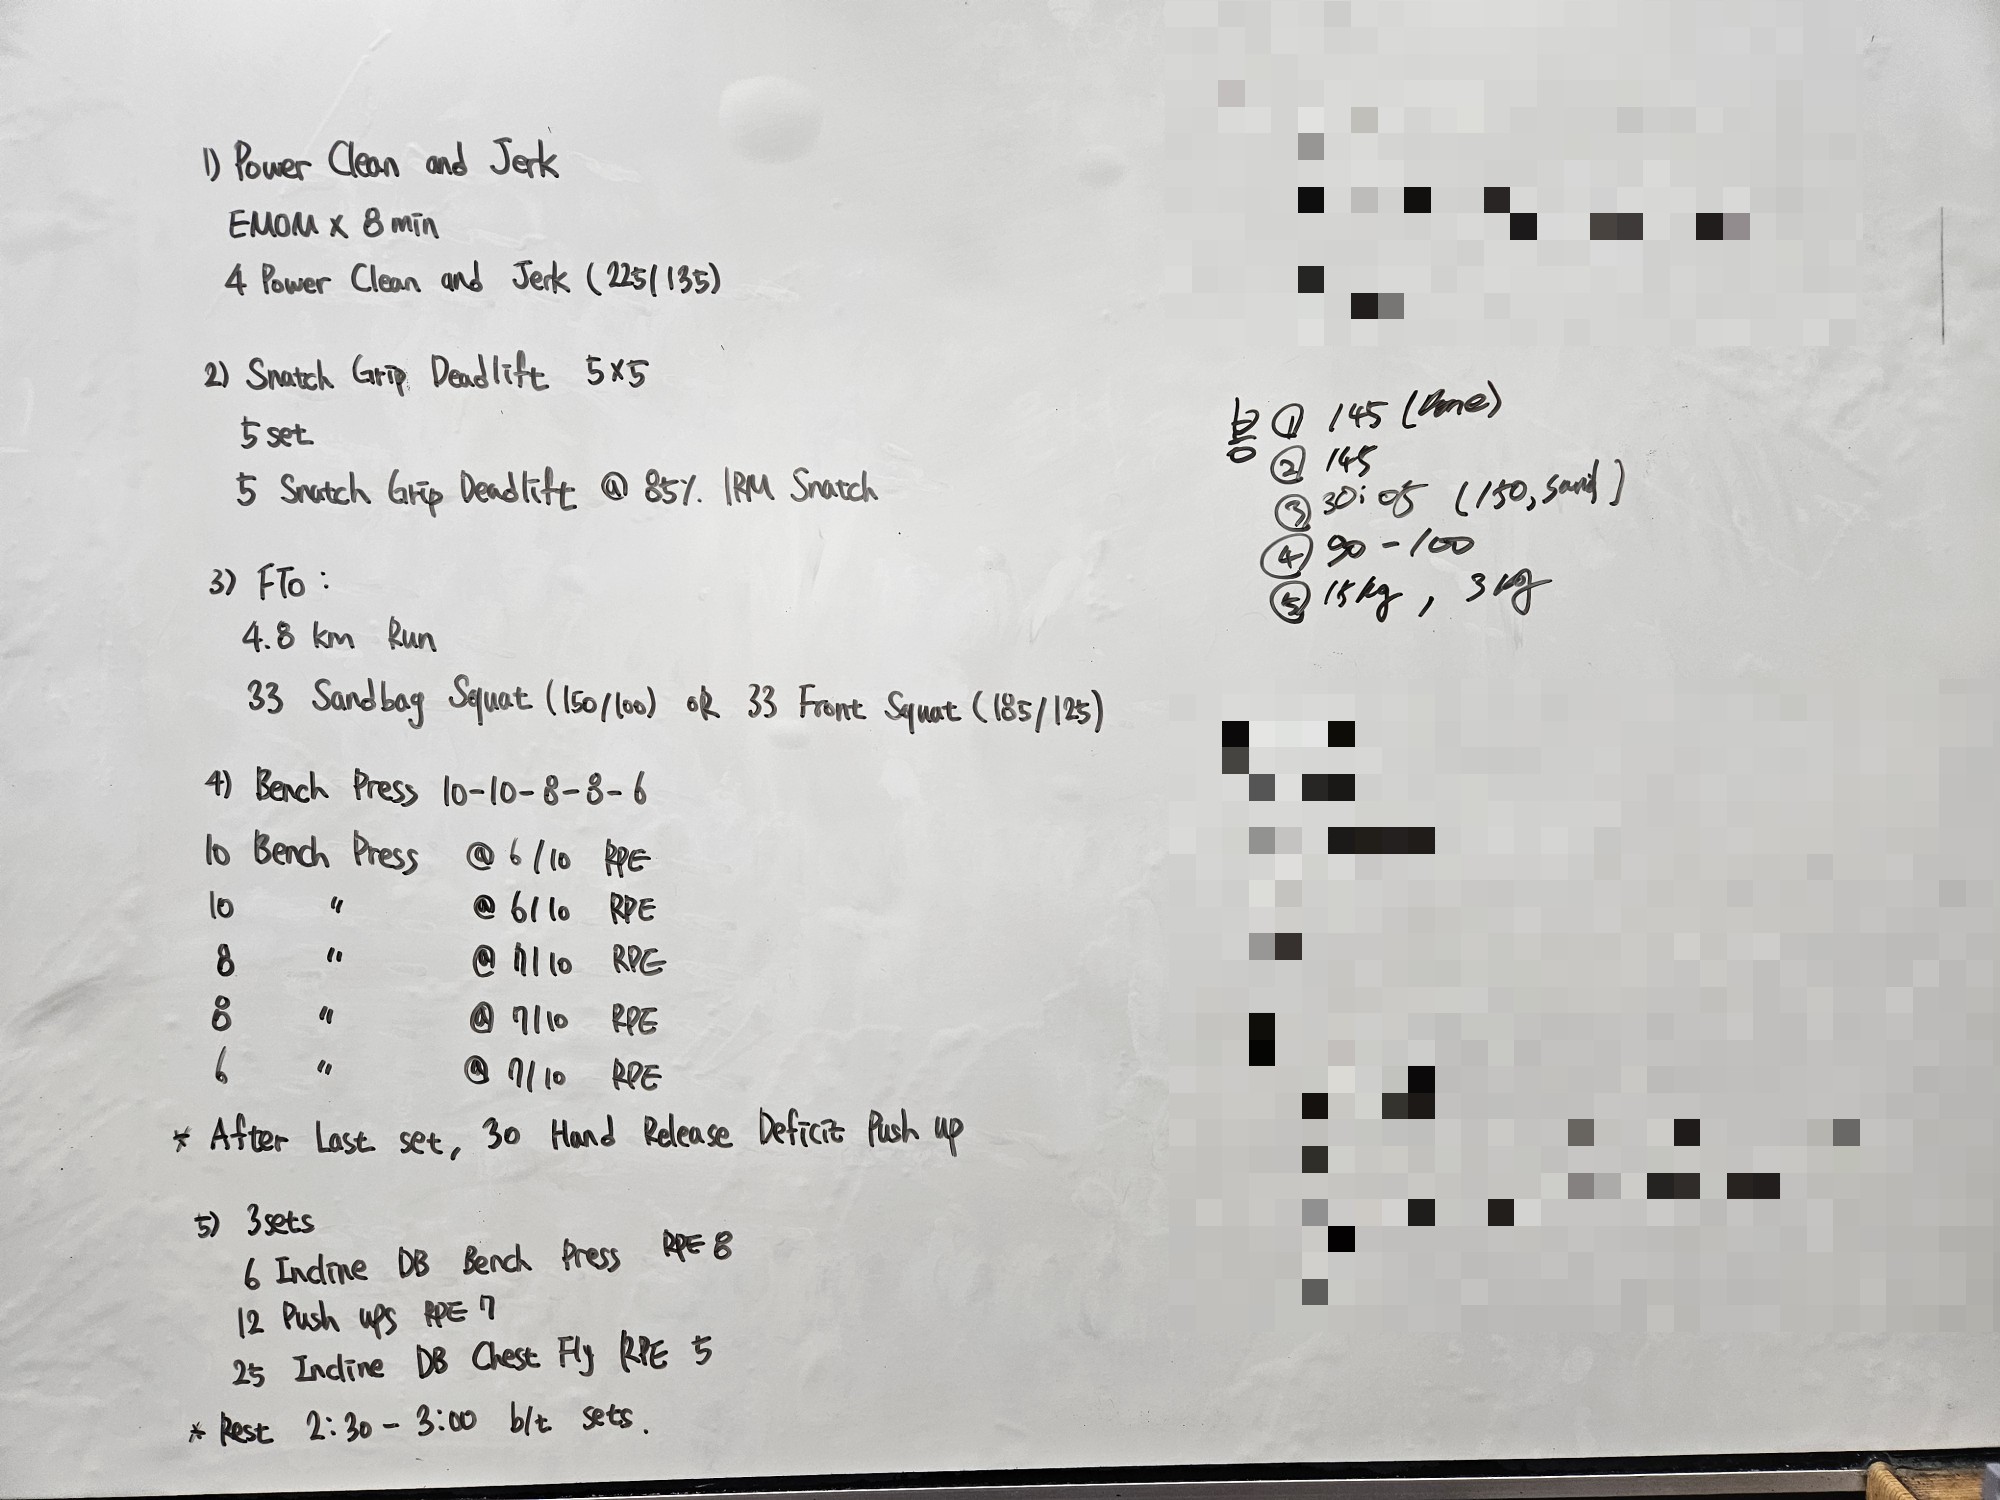 1) Power Clean and Jerk
EMOM x 8 min
4 Power Clean and Jerk (225/135)
2) Snatch Grip Deadlift 5x5
5 set
5 Snatch Grip Deadlift @ 85% 1RM Snatch
3) FTo :
4.8 km Run
33 Sandbag Squat (150/100) oR 33 Front Squat (185/125)
4) Bench Press 10-10-8-8-6
10 Bench Press @ 6/10 RPE
10 " @ 6/10 RPE
8 " @ 7/10 RPE
8 " @ 7/10 RPE
6 " @ 7/10 RPE
* After Last set, 30 Hand Release Deficit Push up
5) 3sets
6 Incline DB Bench Press RPE 8
12 Push ups RPE 7
25 Incline DB Chest Fly RPE 5
* Rest 2:30 - 3:00 b/t sets.
봉 ① 145 (Done)
② 145
③ 30:05 (150, sand)
④ 90 - 100
⑤ 15kg, 3kg